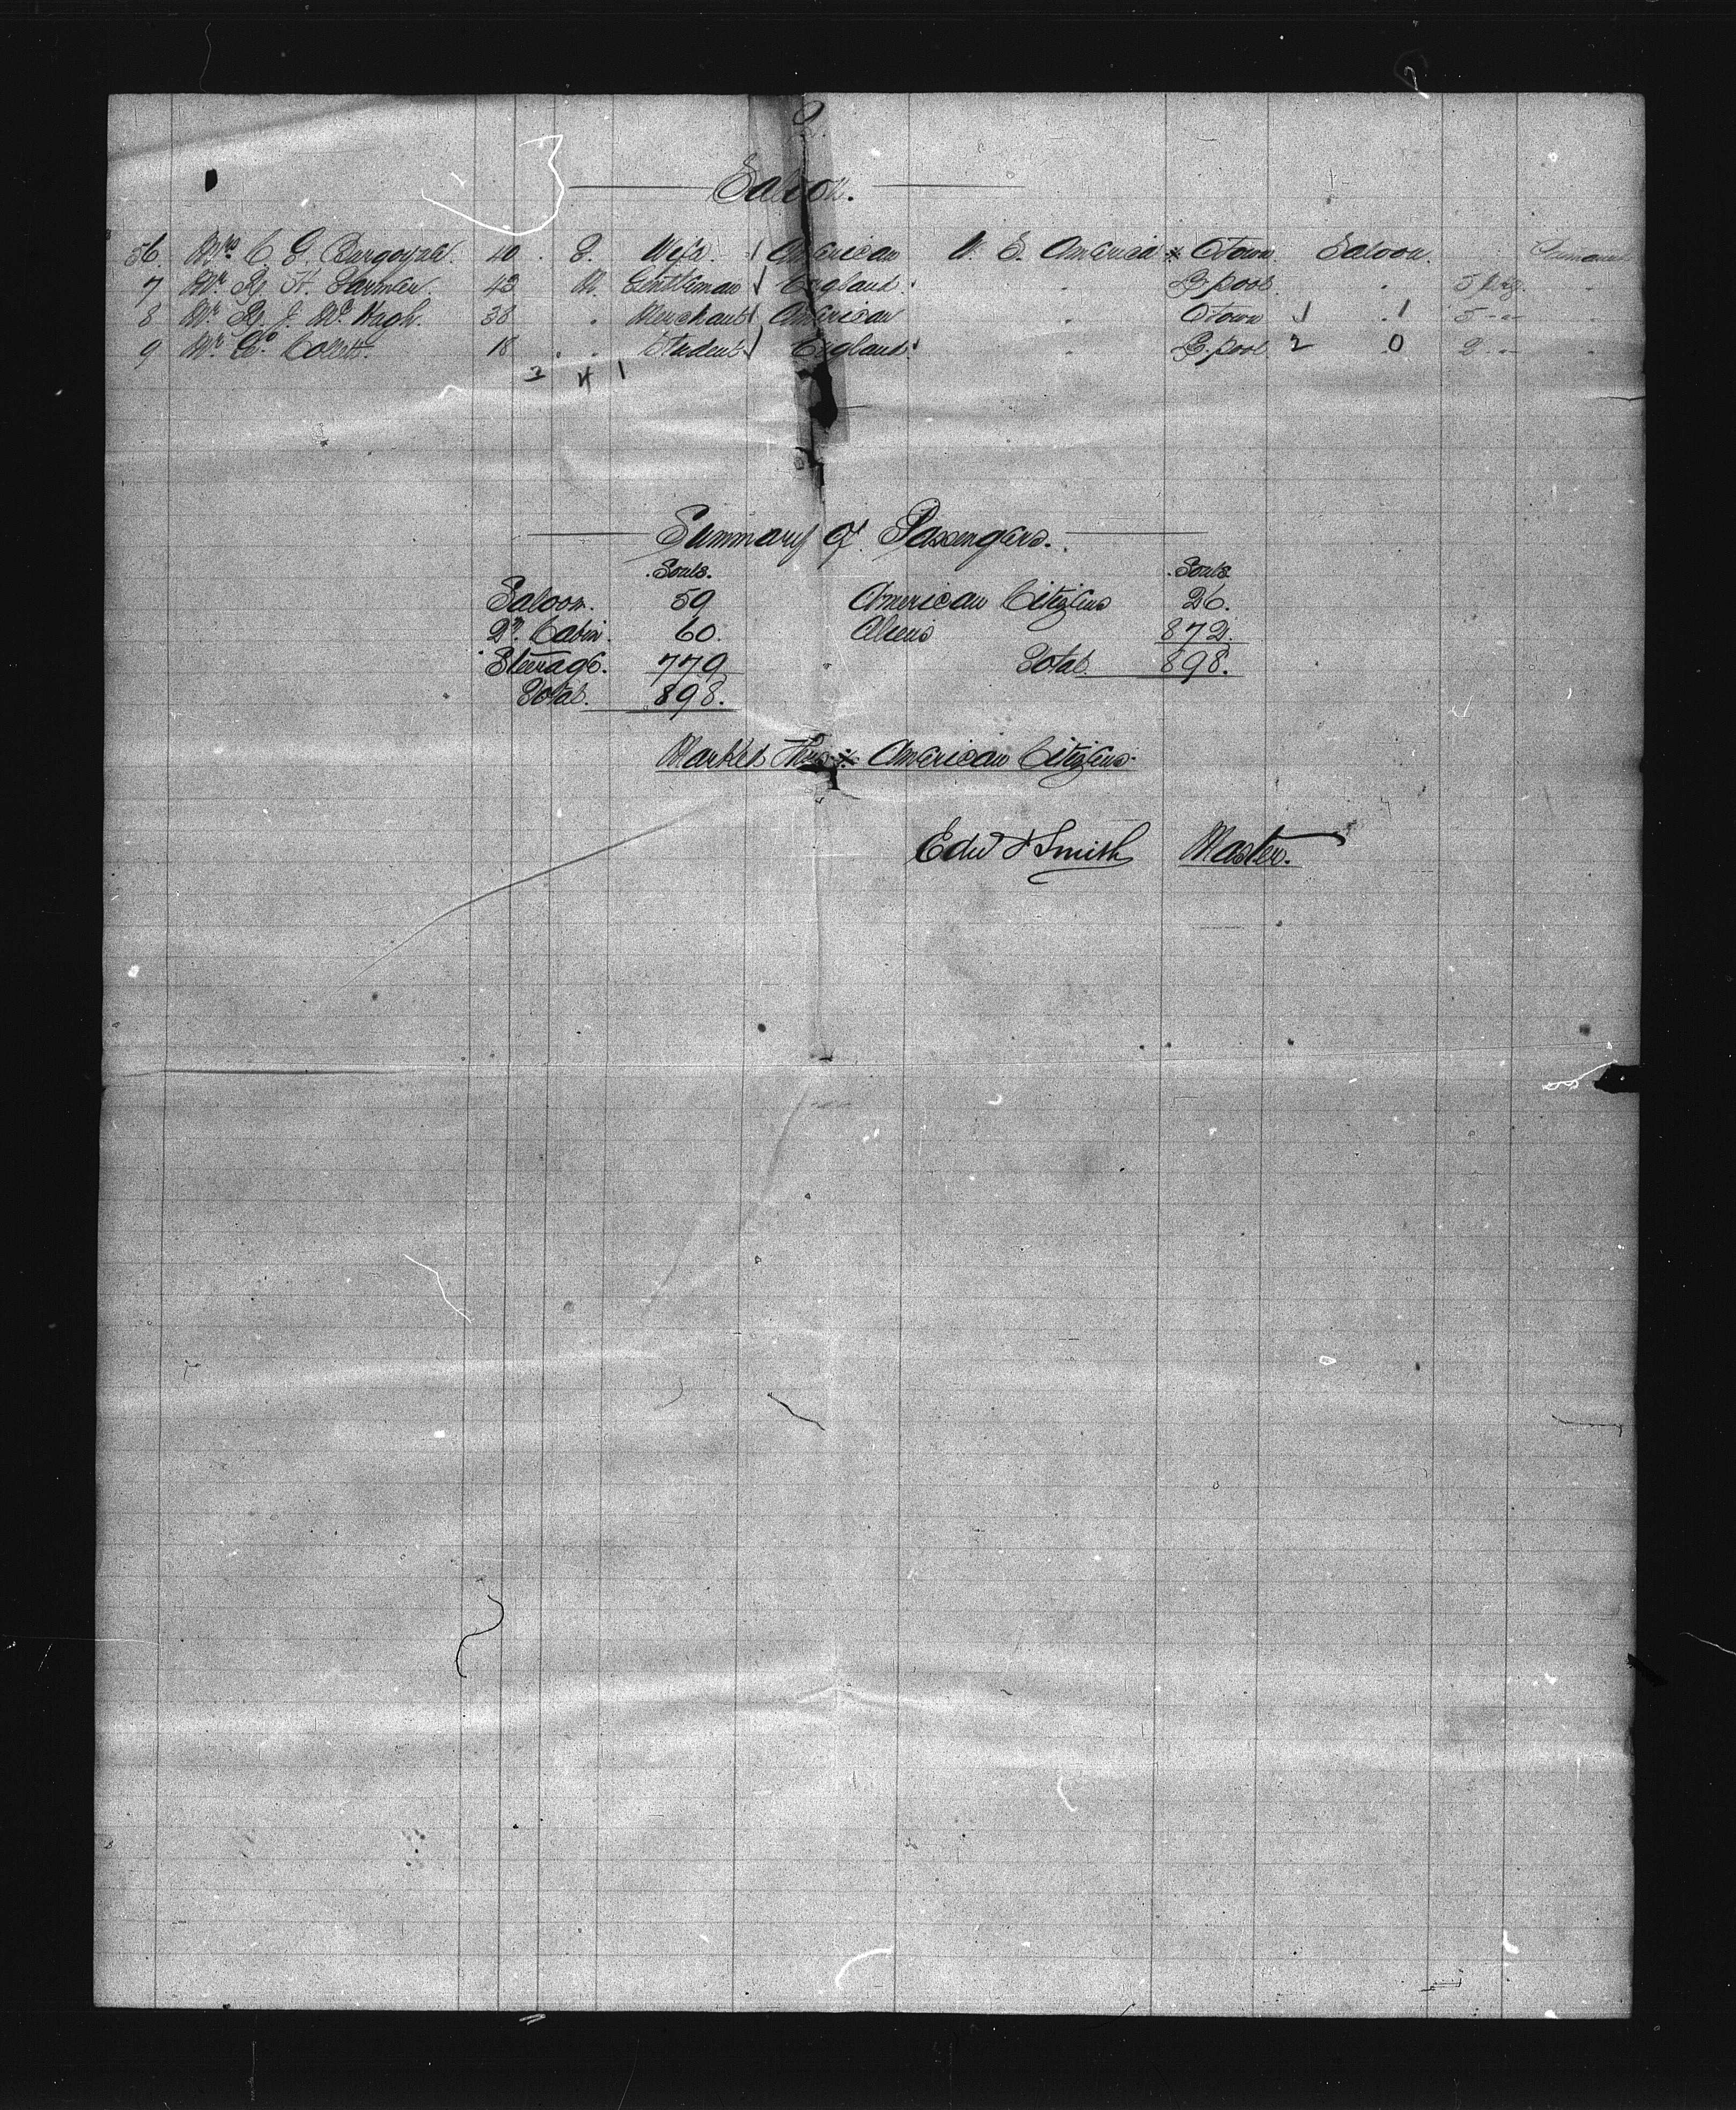 Saloon.
56. Mrs C. G. Burgoyne. 40 . F. Wife. American U. S. America * Qtown. Saloon.
7 Mr. R. H. Farmer. 42 M. Gentleman England. " L. pool. " 5 pkg. "
8 Mr. R. J. McHugh. 38 " Merchant American " Qtown 1 . 1 5 -"- "
9 Mr. Collett. 18 . " Student England. " L. pool. 2 . 0 2 -"- "
3 4 1
Summary of Passengers.
Souls. Souls.
Saloon. 59 American Citizens 26.
2nd. Cabin. 60. Aliens 872.
Steerage. 779 Total. 898.
Total. 898.
Marked Thus * American Citizens.
Edwd J Smith Master.